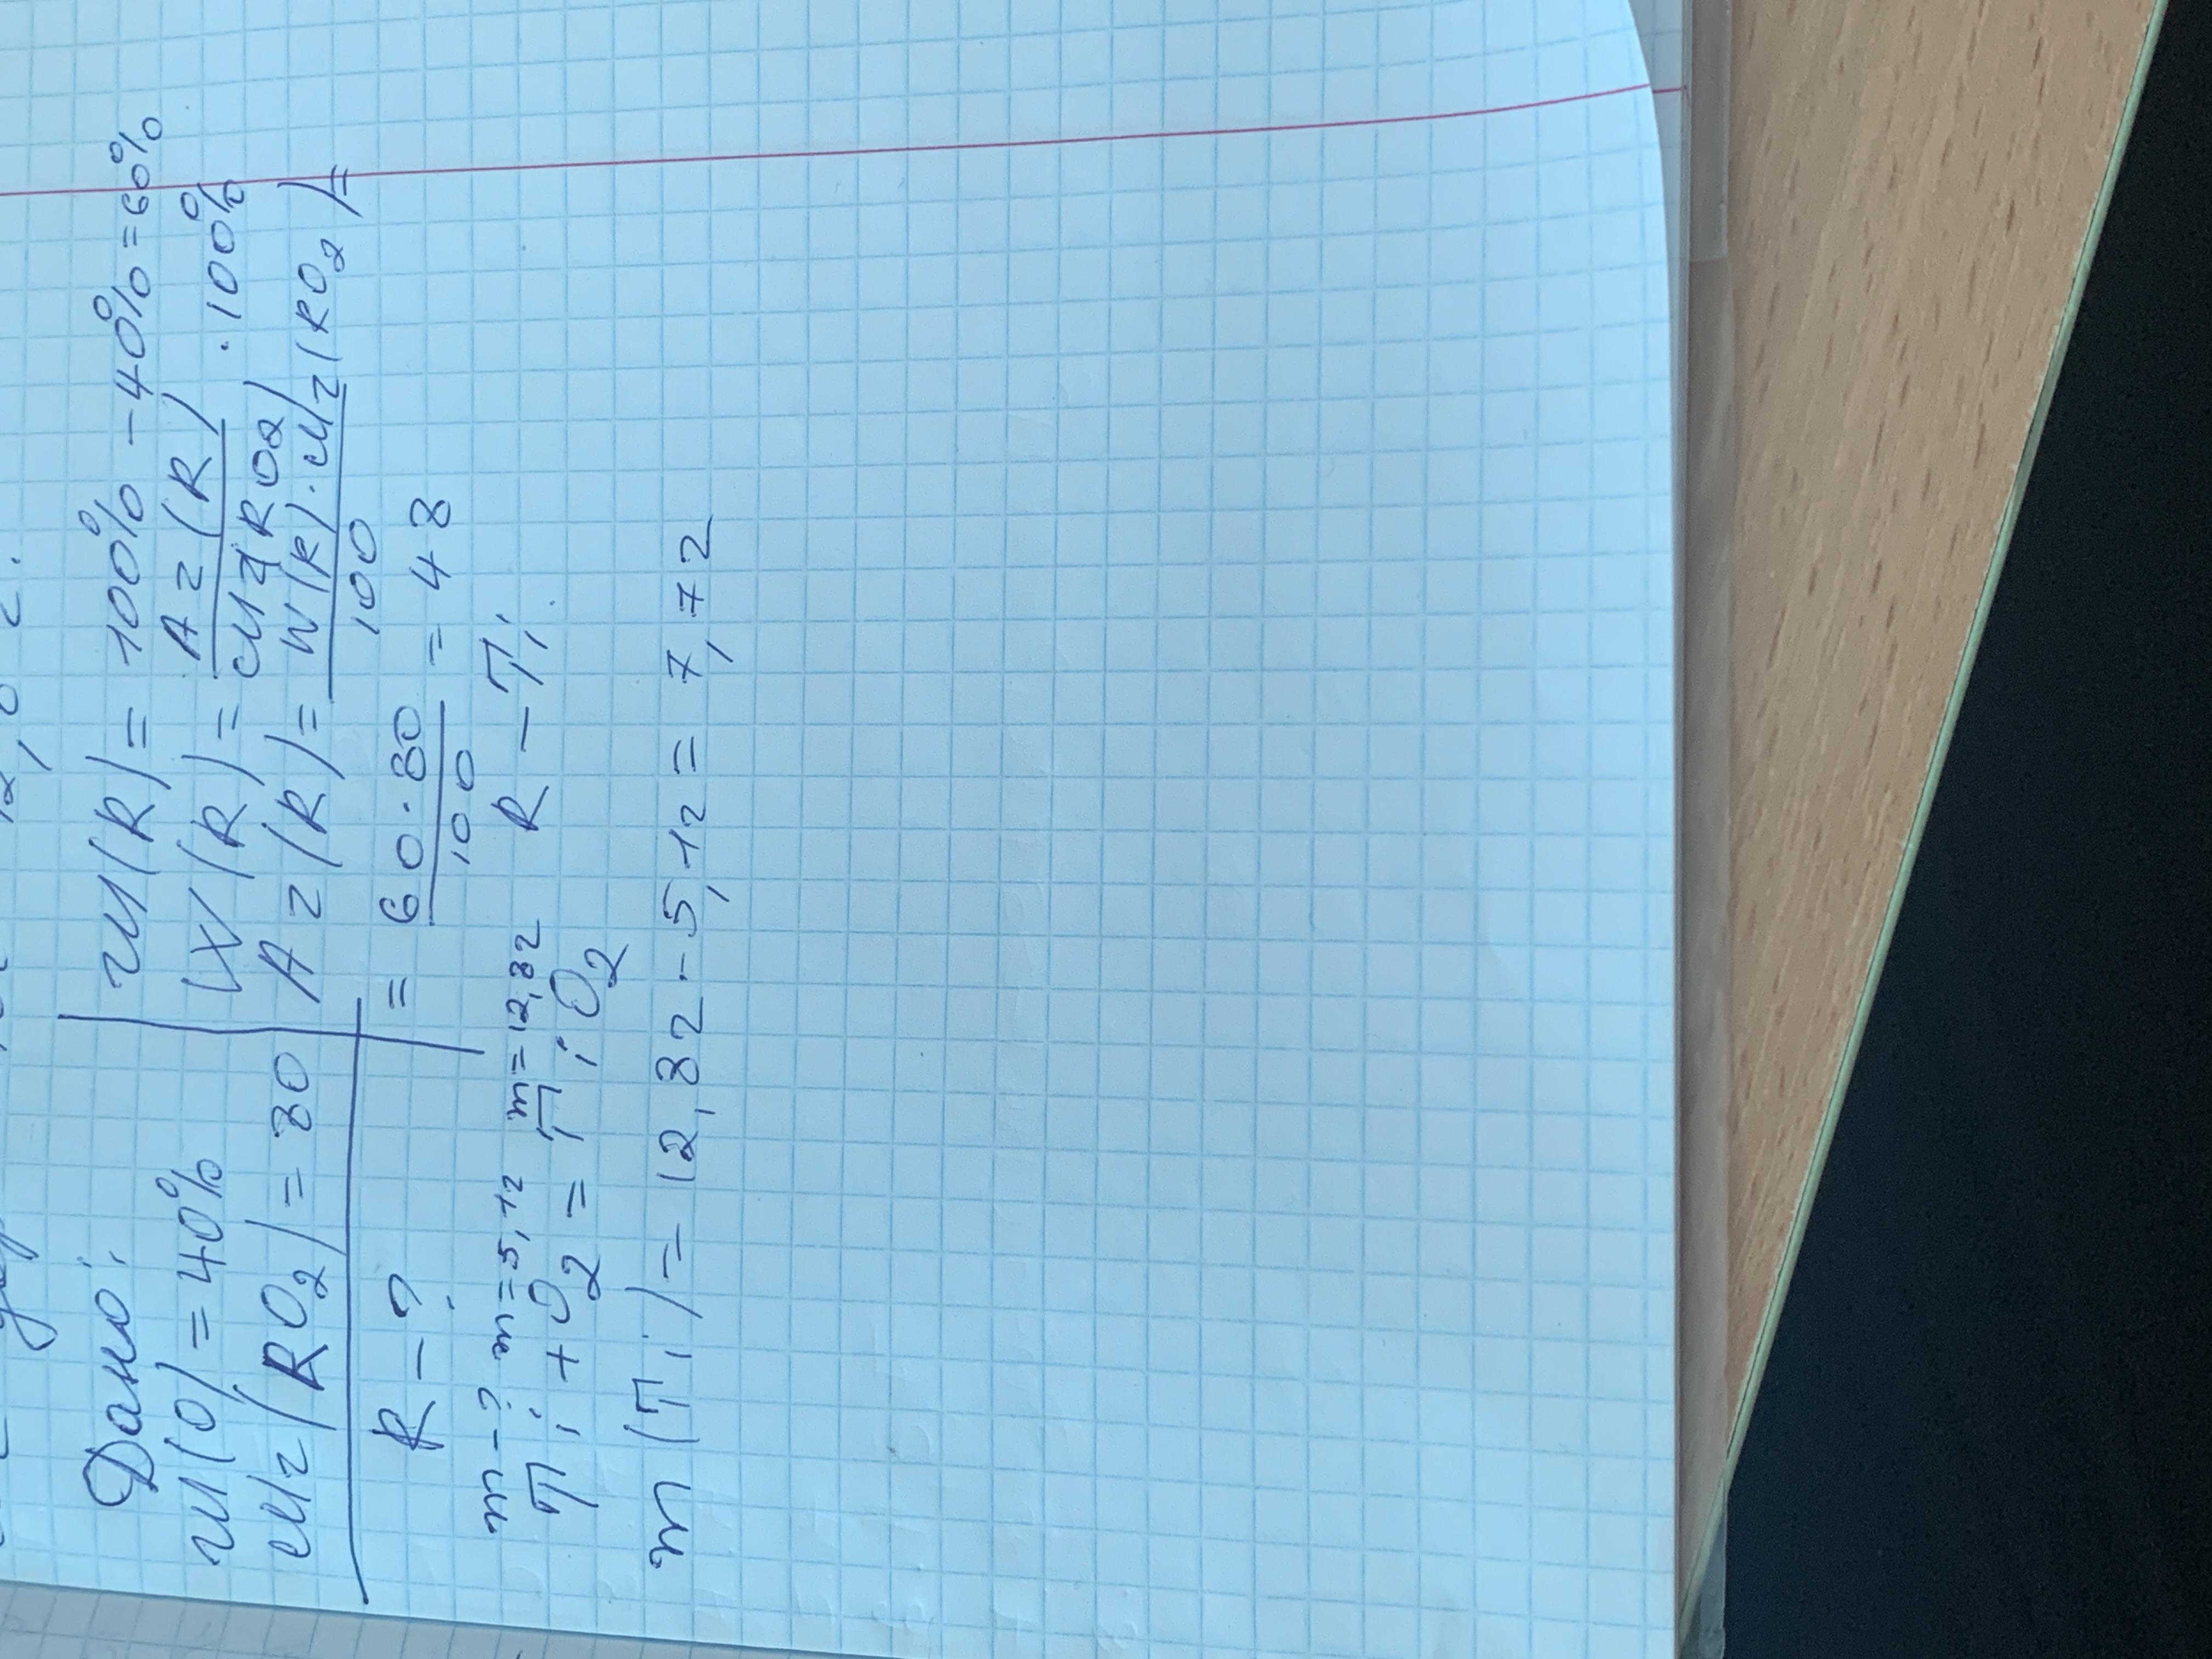 Дано:
W(O) = 40%
Mr(RO2) = 80
R - ?
W(R) = 100% - 40% = 60%
W(R) = Ar(R) / Mr(RO2) · 100%
Ar(R) = W(R) · Mr(RO2) / 100 =
= 60 · 80 / 100 = 48
R - Ti
m - ? m = 5,1г m = 12,8г
Ti + O2 = TiO2
m (Ti) = 12,8г - 5,1г = 7,7г